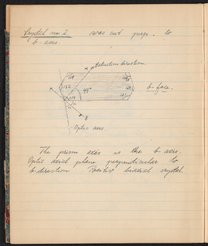 Crystal no. 2 was cut perp. to
b-axis.
extinction direction
b face.
Optic axis
The prism axis is the b axis
Optic axial plane perpendicular to
b-direction. Positive biaxial crystal.